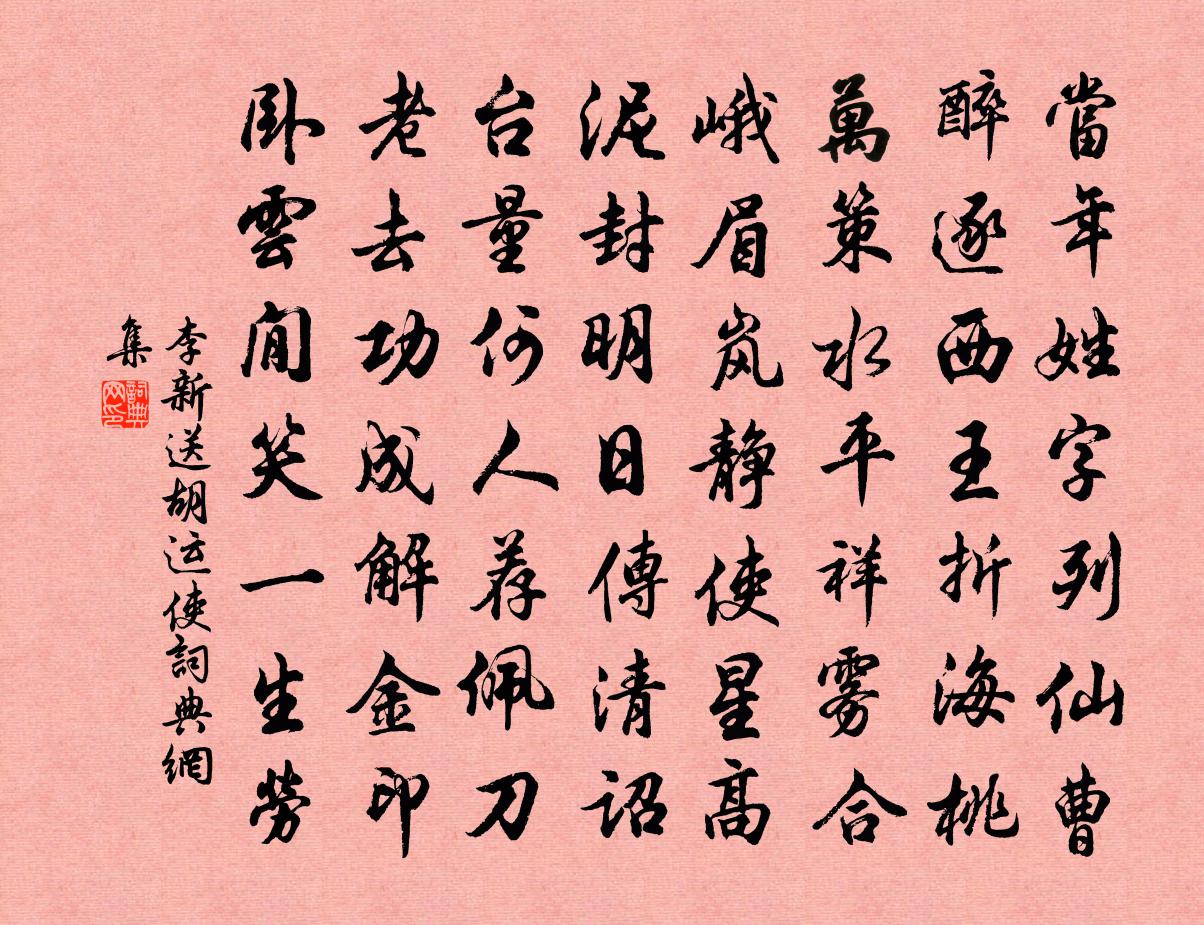 當年姓字列仙曹
醉逐西王折海桃
萬策水平祥雾合
峨眉岚静使星高
泥封明日傳清詔
台量何人荐佩刀
老去功成解金印
卧雲闲笑一生勞
李新送胡运使詞典網
集
詞典网印